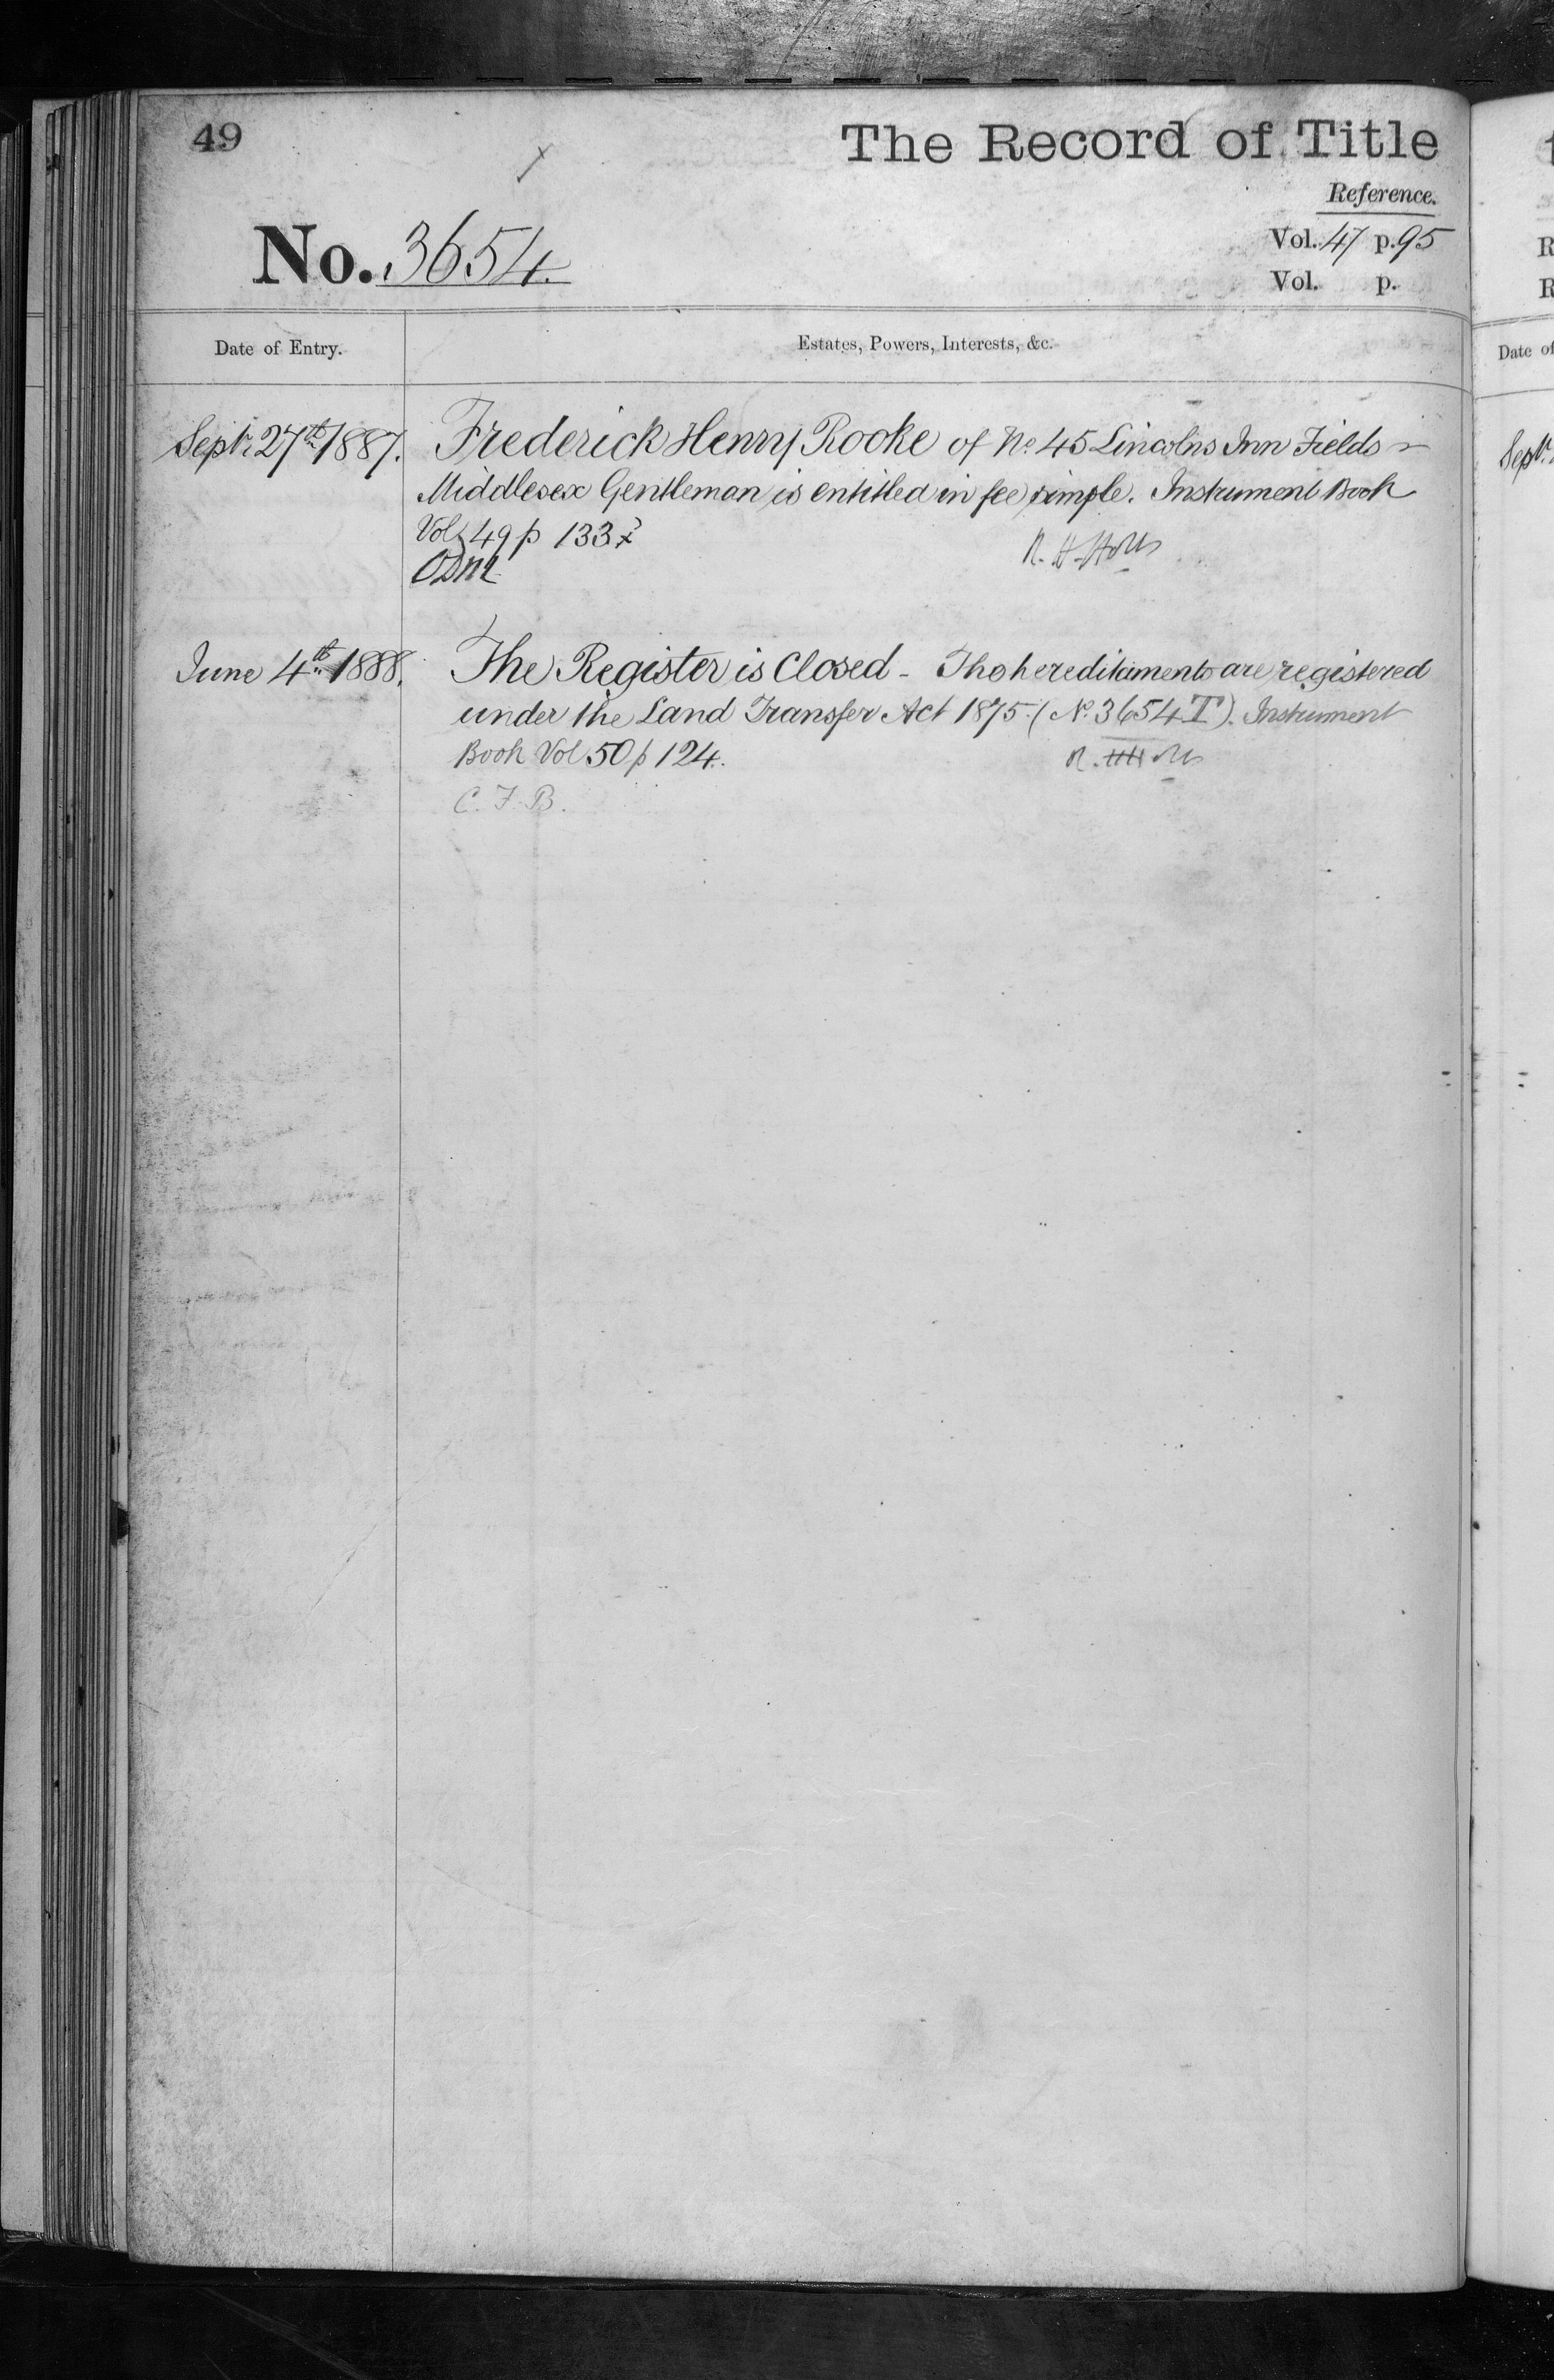 49
The Record of Title
Reference.
No. 3654.
Vol. 47 p. 95
Vol. p.
Date of Entry.
Estates, Powers, Interests, &c.
Septr. 27th 1887.
Frederick Henry Rooke of No. 45 Lincolns Inn Fields
Middlesex Gentleman is entitled in fee simple. Instrument Book
Vol 49 p 133
June 4th 1888.
The Register is Closed - The hereditaments are registered
under the Land Transfer Act 1875. (No. 3654 T). Instrument
Book Vol 50 p 124.
C. F. B.
Date of
Septr.